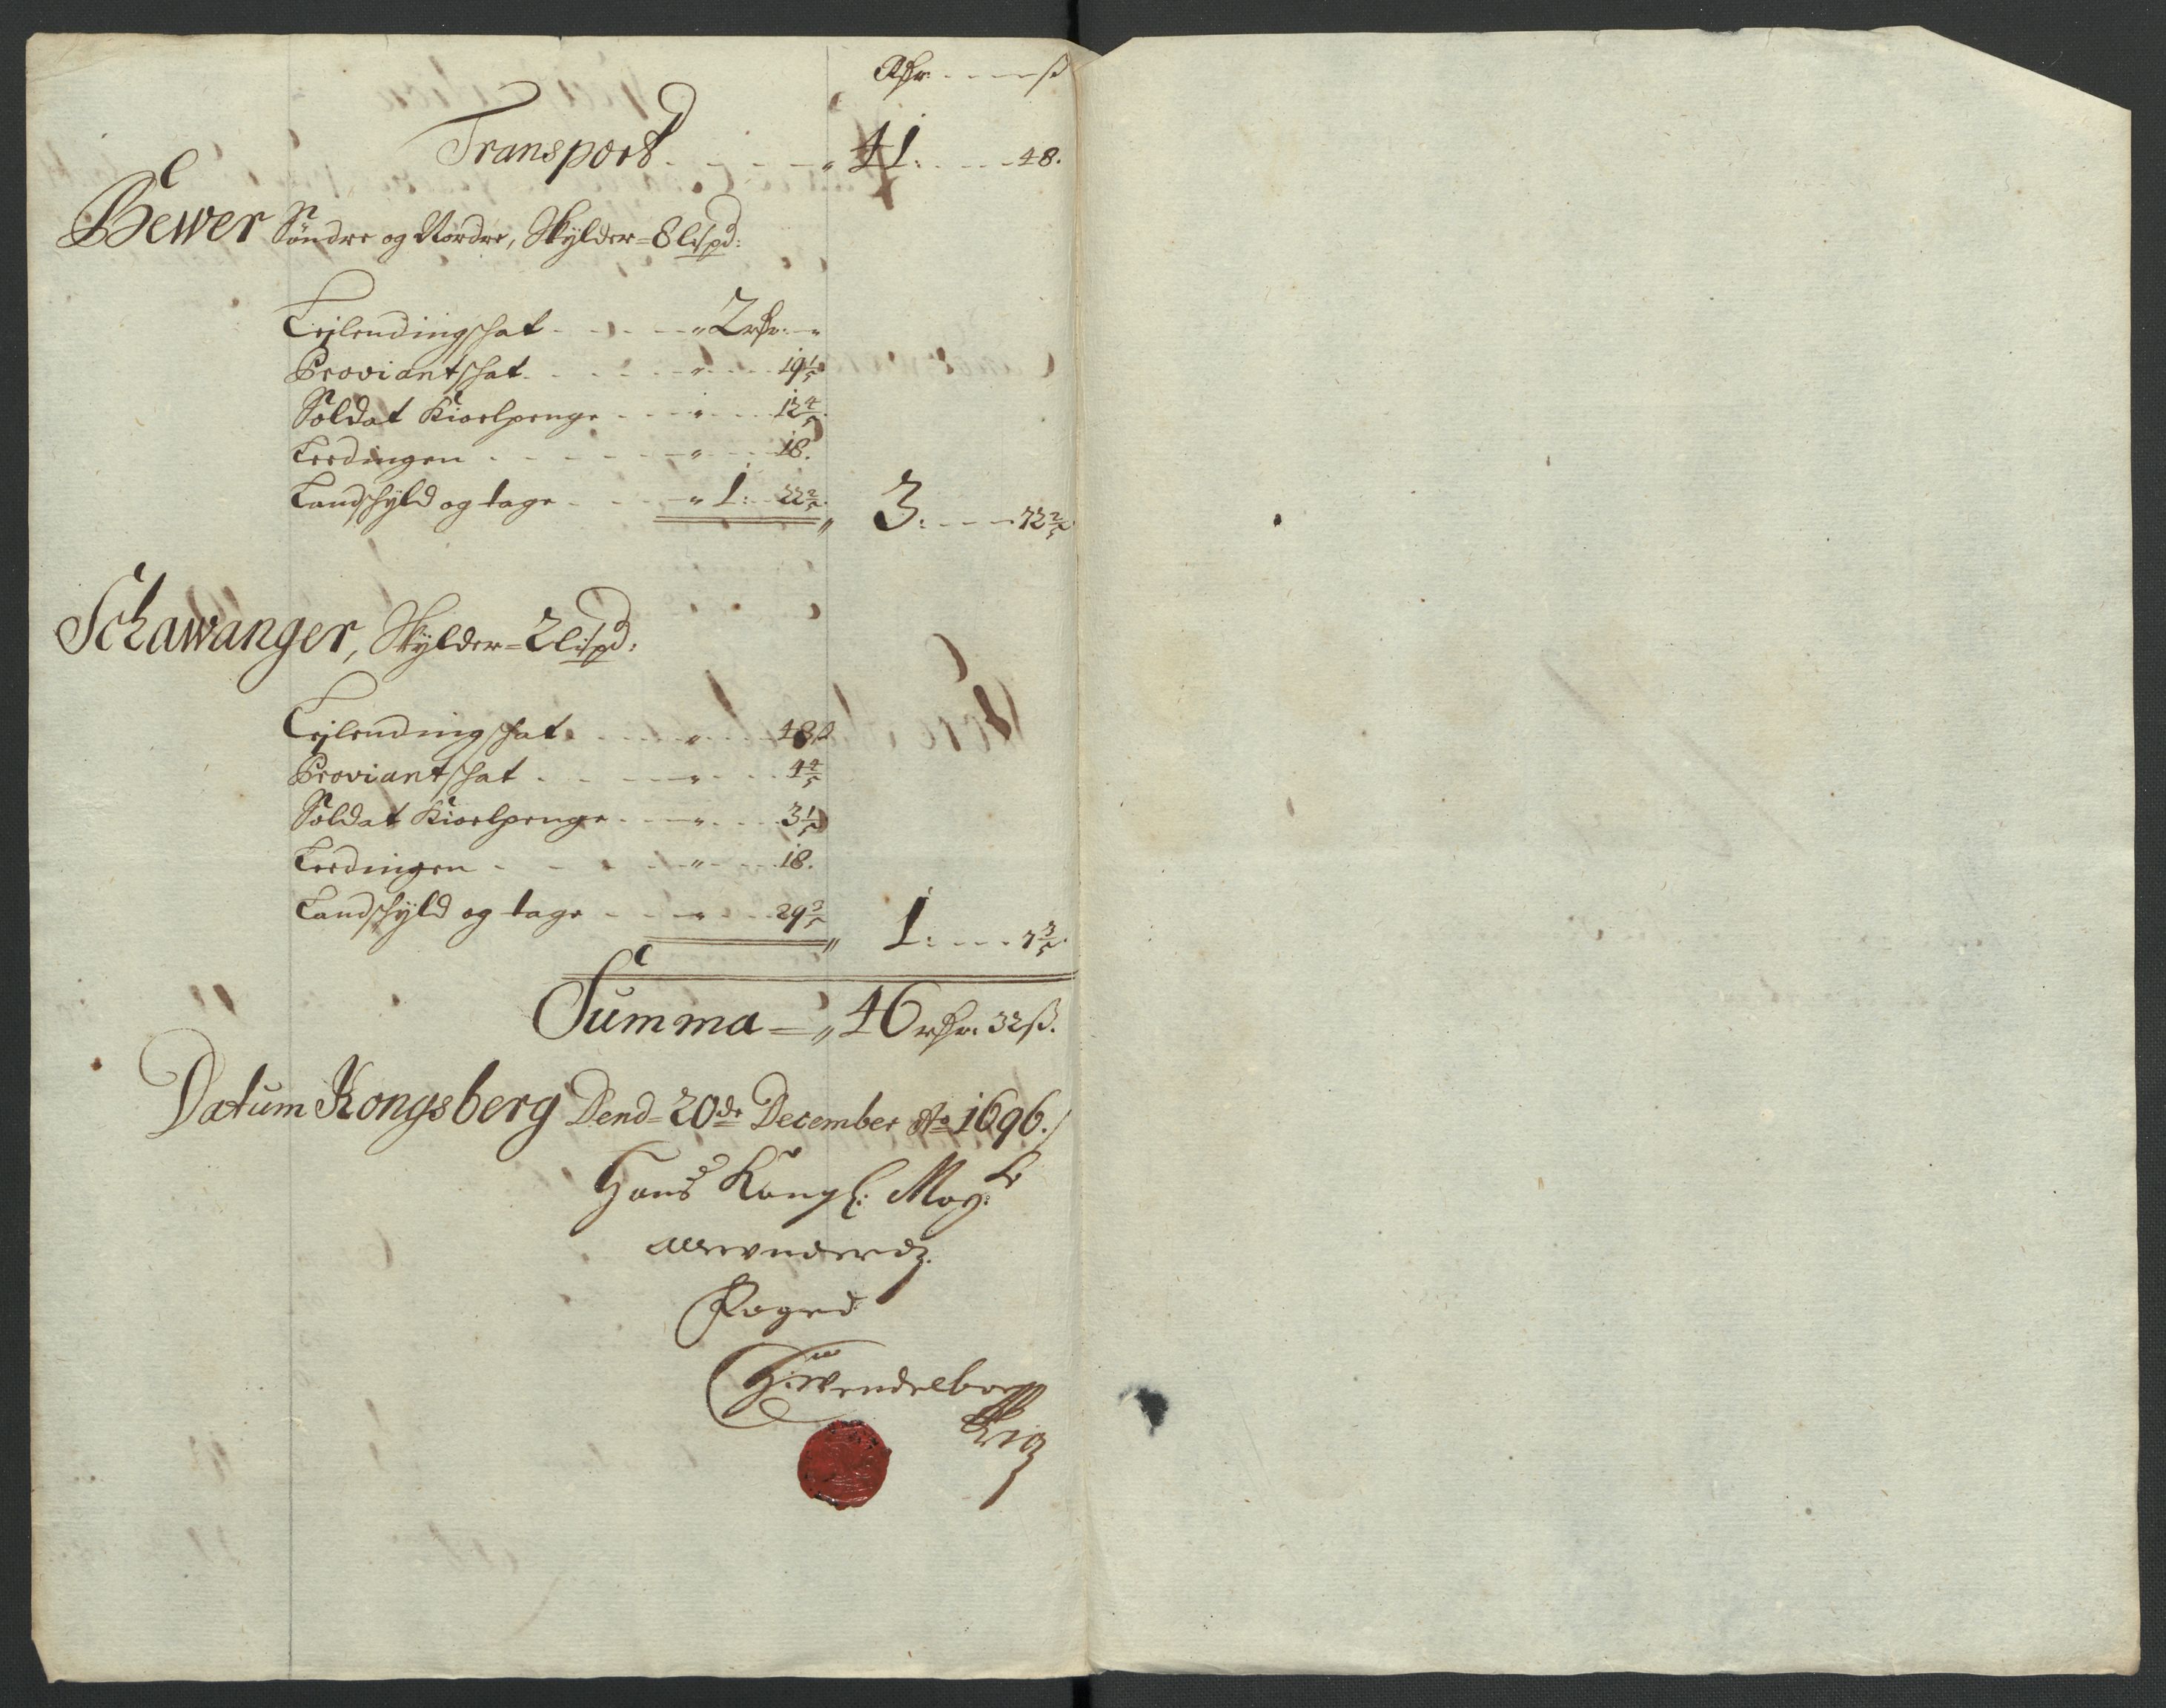 Rdr. - - - ß
Transport - - - - „ 41: - - - 48.
Bewer Söndre og Nordre, Skylder = 8 lispd:
Lejlendingschat - - - „ 2 rdr: - „
Proviantschat - - - „ - - 19 1/5
Soldat Kioelpenge - - - „ - - 12 4/5
Leedingen - - - „ - - 18.
Landschyld og tage - - - „ 1: 22 2/5. „ 3: - - - 72 2/5
Schawanger, Skylder = 2 lispd:
Lejlendingschat - - - „ - - 48 ß
Proviantschat - - - „ - - 4 4/5
Soldat Kioelpenge - - - „ - - 3 1/5
Leedingen - - - „ - - 18.
Landschyld og tage - - - „ - - 29 3/5 „ 1: - - - 7 3/5.
Summa = „ 46 rdr. 32 ß.
Datum Kongsberg Dend = 20de December Ao 1696./
Hans Kongl: May:ts
Foged
H: Wendelboe